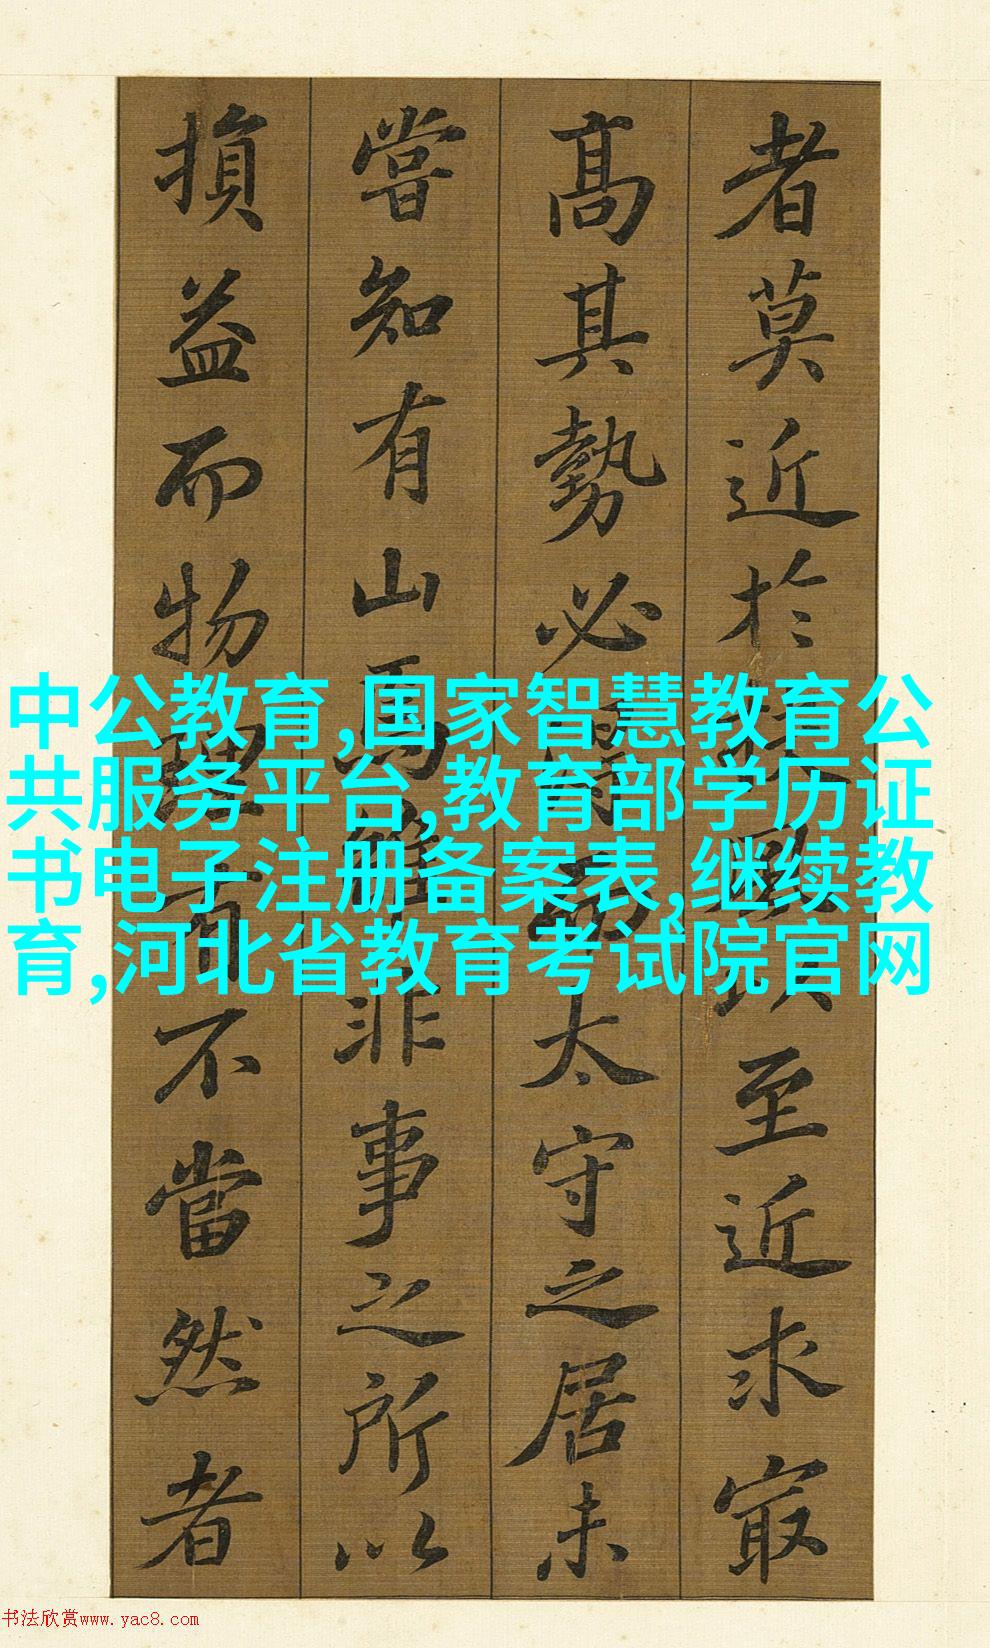 者莫近於扶風以至近求冣
高其勢必得而太守之居未
嘗知有山焉雖非事之所以
損益而物理有不當然者
中公教育,国家智慧教育公
共服务平台,教育部学历证
书电子注册备案表,继续教
育,河北省教育考试院官网
书法欣赏www.yac8.com